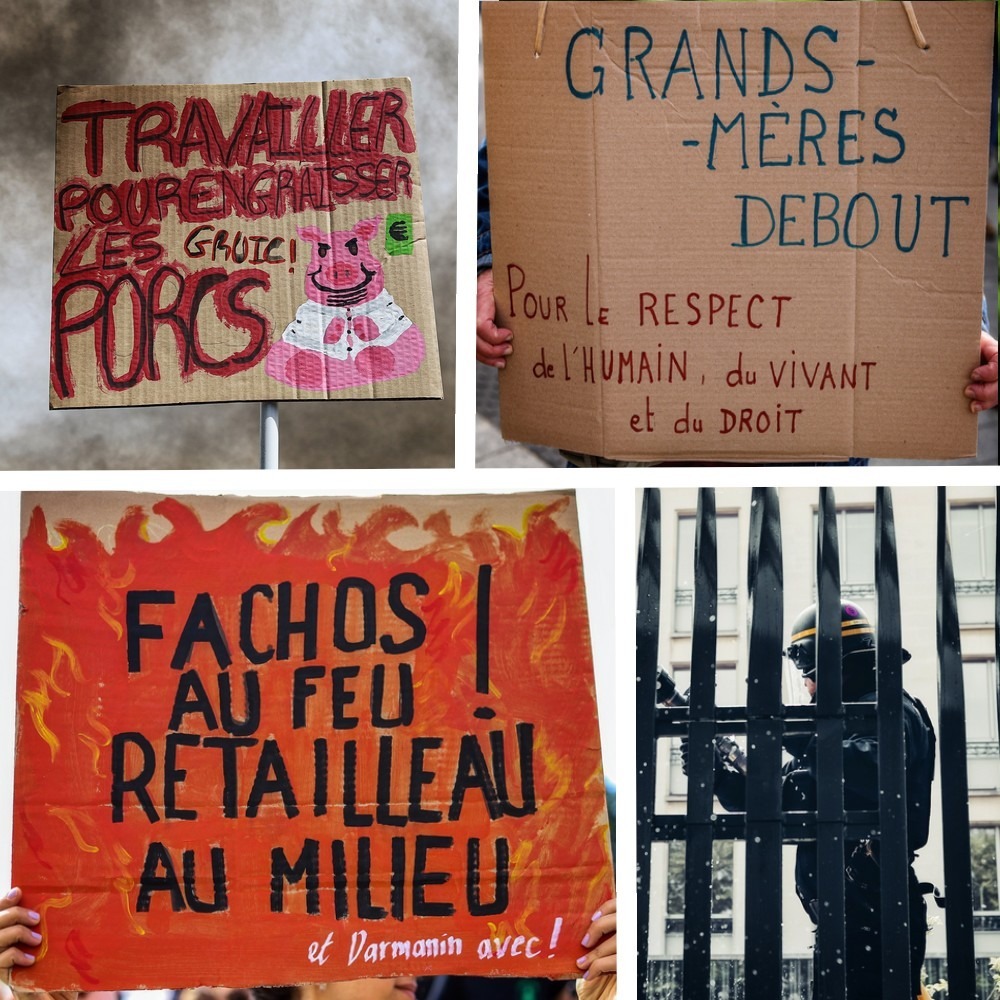 TRAVAILLER
POUR ENGRAISSER
LES GRUIC!
PORCS
€
GRANDS-
-MÈRES
DEBOUT
POUR LE RESPECT
de l'HUMAIN, du VIVANT
et du DROIT
FACHOS !
AU FEU
RETAILLEAU
AU MILIEU
et Darmanin avec !